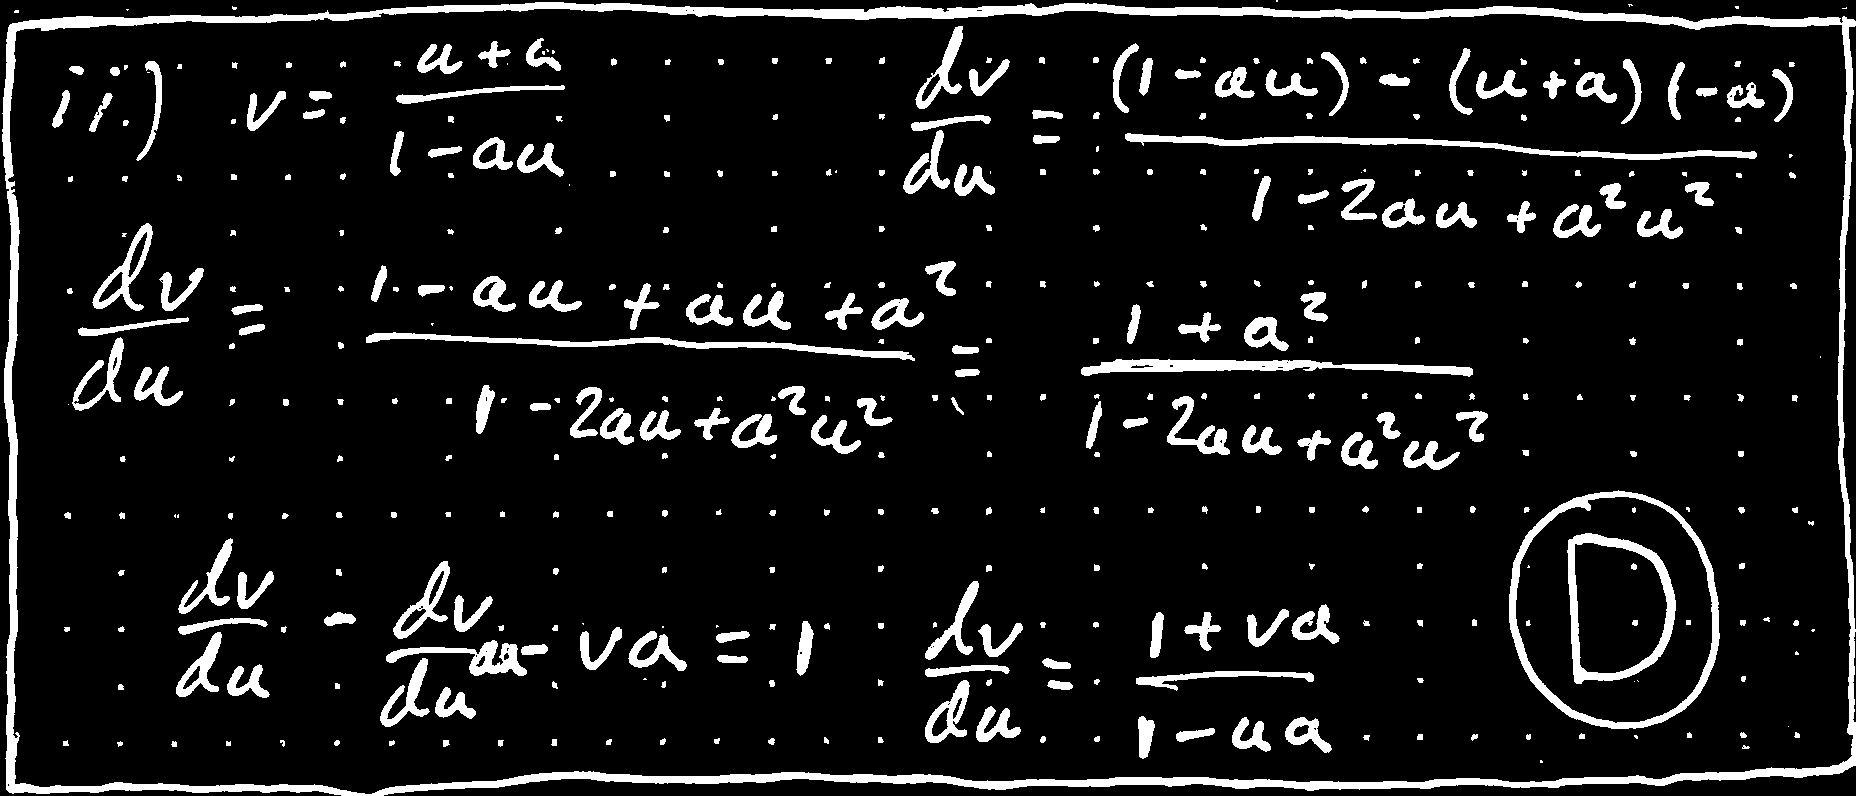 ii.) v = (u + a)/(1 - au)   dv/du = ((1 - au) - (u + a)(-a))/(1 - 2au + a²u²)
dv/du = (1 - au + au + a²)/(1 - 2au + a²u²) = (1 + a²)/(1 - 2au + a²u²)
dv/du - dv/du au - va = 1   dv/du = (1 + va)/(1 - ua)   D